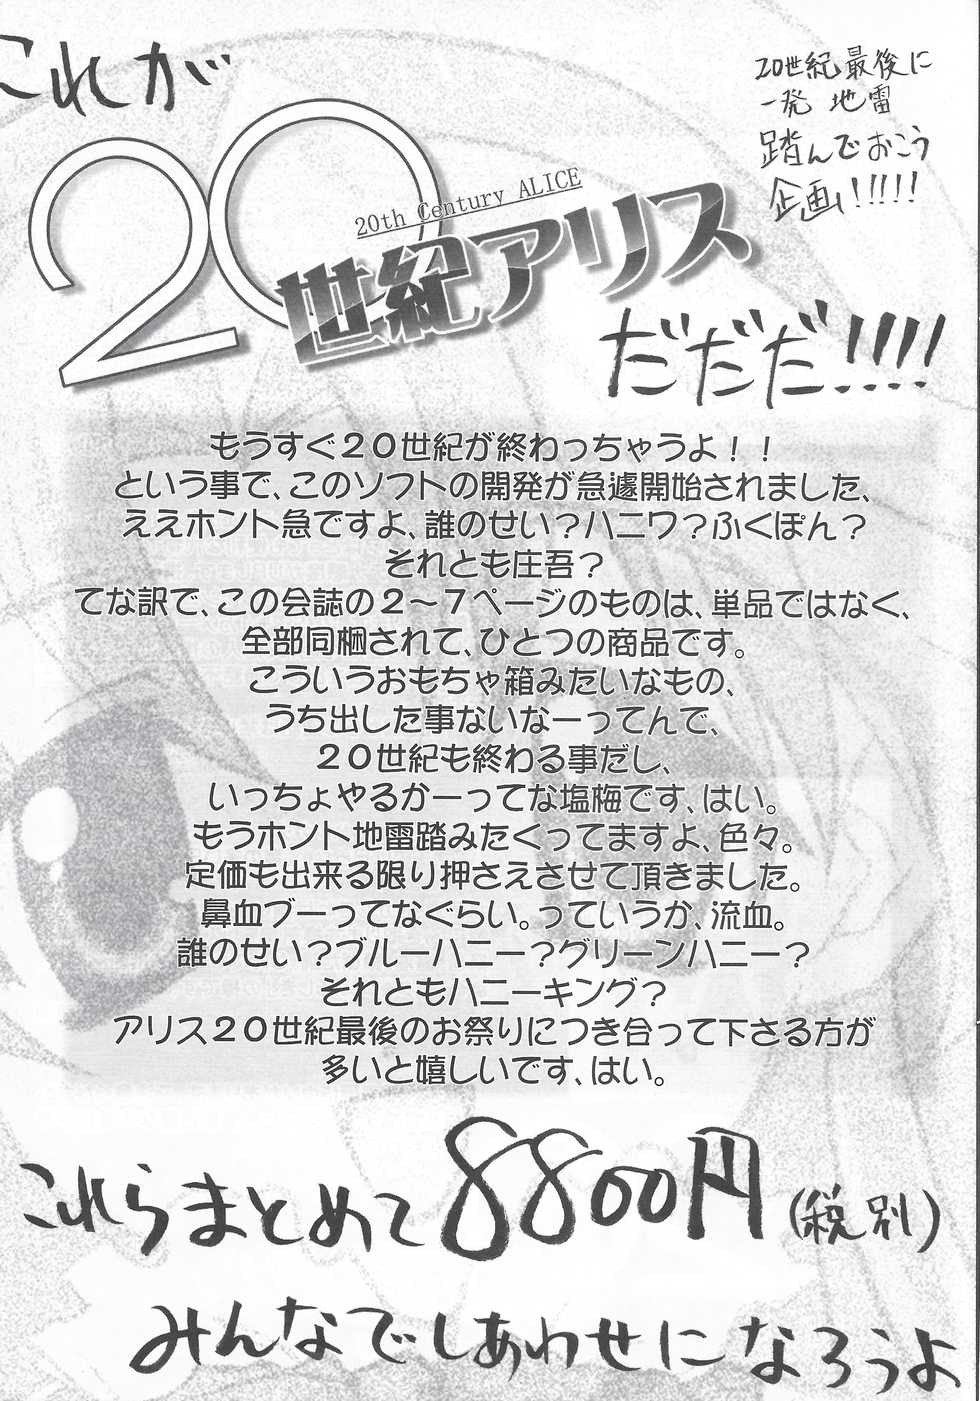 これが
20世紀最後に
一発 地雷
踏んでおこう
企画!!!!!
20th Century ALICE
20世紀アリス
だだだ!!!!
もうすぐ20世紀が終わっちゃうよ！！
という事で、このソフトの開発が急遽開始されました、
ええホント急ですよ、誰のせい？ハニワ？ふくぽん？
それとも庄吾？
てな訳で、この会誌の2〜7ページのものは、単品ではなく、
全部同梱されて、ひとつの商品です。
こういうおもちゃ箱みたいなもの、
うち出した事ないなーってんで、
20世紀も終わる事だし、
いっちょやるかーってな塩梅です、はい。
もうホント地雷踏みたくってますよ、色々。
定価も出来る限り押さえさせて頂きました。
鼻血ブーってなぐらい。っていうか、流血。
誰のせい？ブルーハニー？グリーンハニー？
それともハニーキング？
アリス20世紀最後のお祭りにつき合って下さる方が
多いと嬉しいです、はい。
これらまとめて8800円(税別)
みんなでしあわせになろうよ